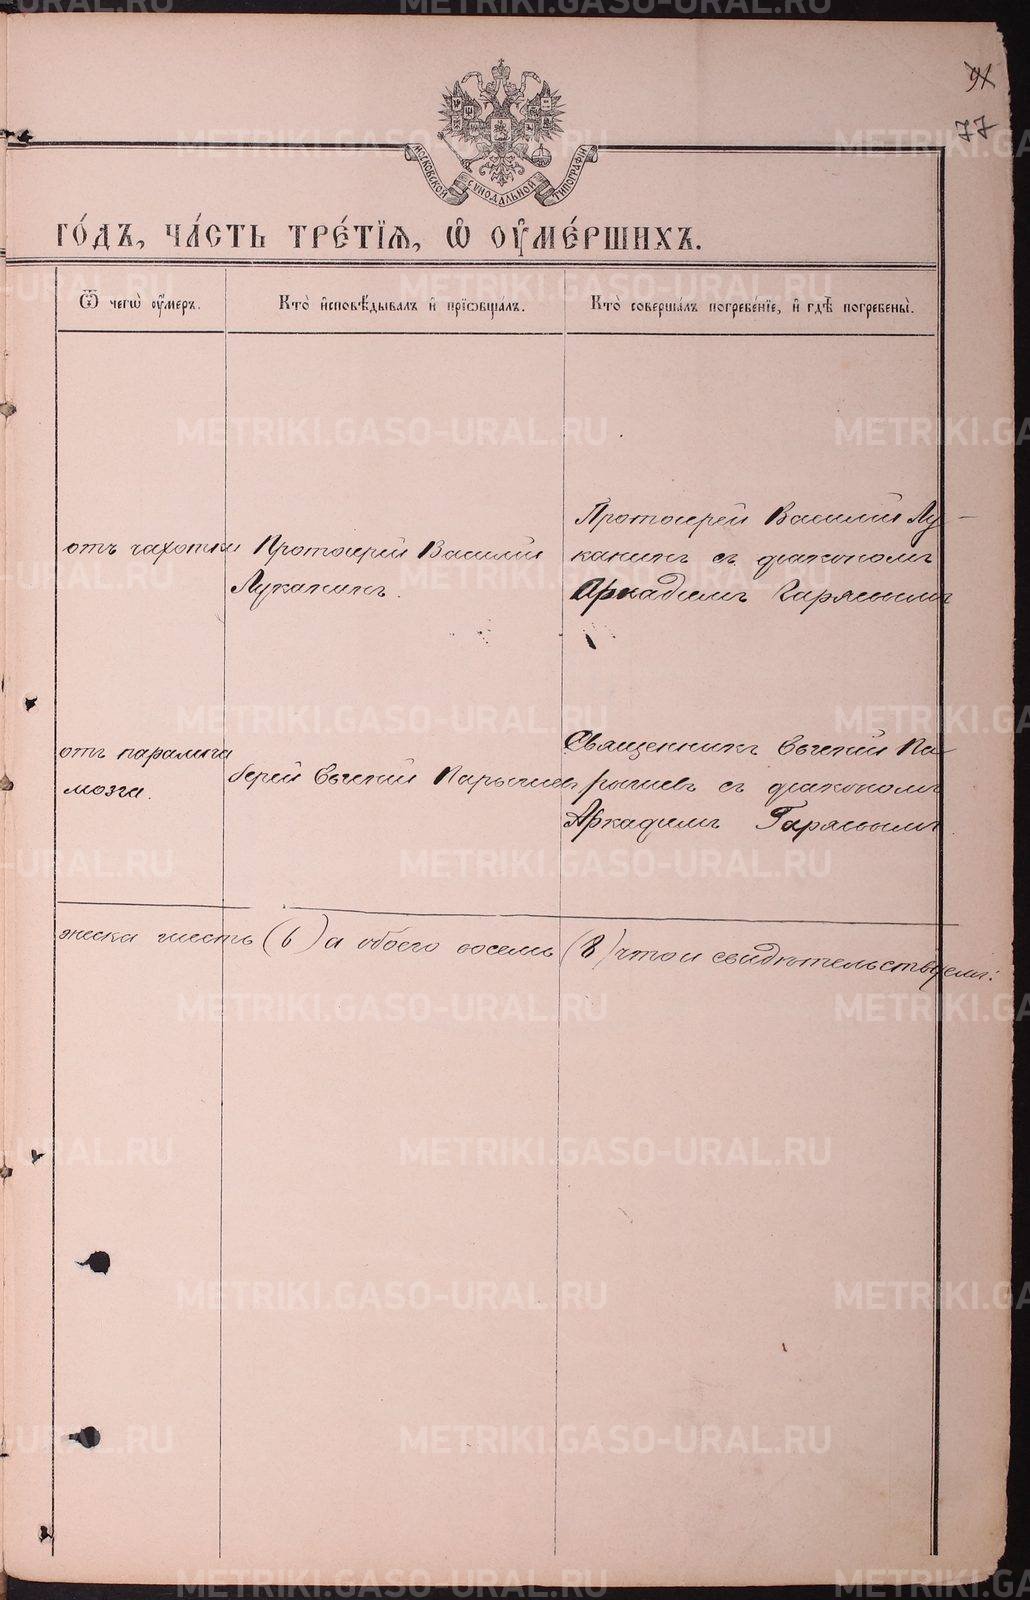 91
77
МОСКОВСКОЙ СѴНОДАЛЬНОЙ ТИПОГРАФІИ
ГО́ДЪ, ЧА́СТЬ ТРЕ́ТЇѦ, Ѡ҆ ОУ҆МЕ́РШИХЪ.
Ѿ чегѡ̀ оу҆́меръ.
Кто̀ и҆сповѣ́дывалъ и҆ прїѡбща́лъ.
Кто̀ соверша́лъ погребе́нїе, и҆ гдѣ̀ погребены̀.
отъ чахотки
Протоіерей Василій
Луканинъ.
Протоіерей Василій Лу-
канинъ съ діакономъ
Аркадіемъ Гаряевымъ
отъ паралича
мозга.
Іерей Евгеній Карышевъ
Священникъ Евгеній Ка
рышевъ съ діакономъ
Аркадіемъ Гаряевымъ
женска шесть (6) а обоего восемь (8) что и свидѣтельствуемъ:
METRIKI.GASO-URAL.RU